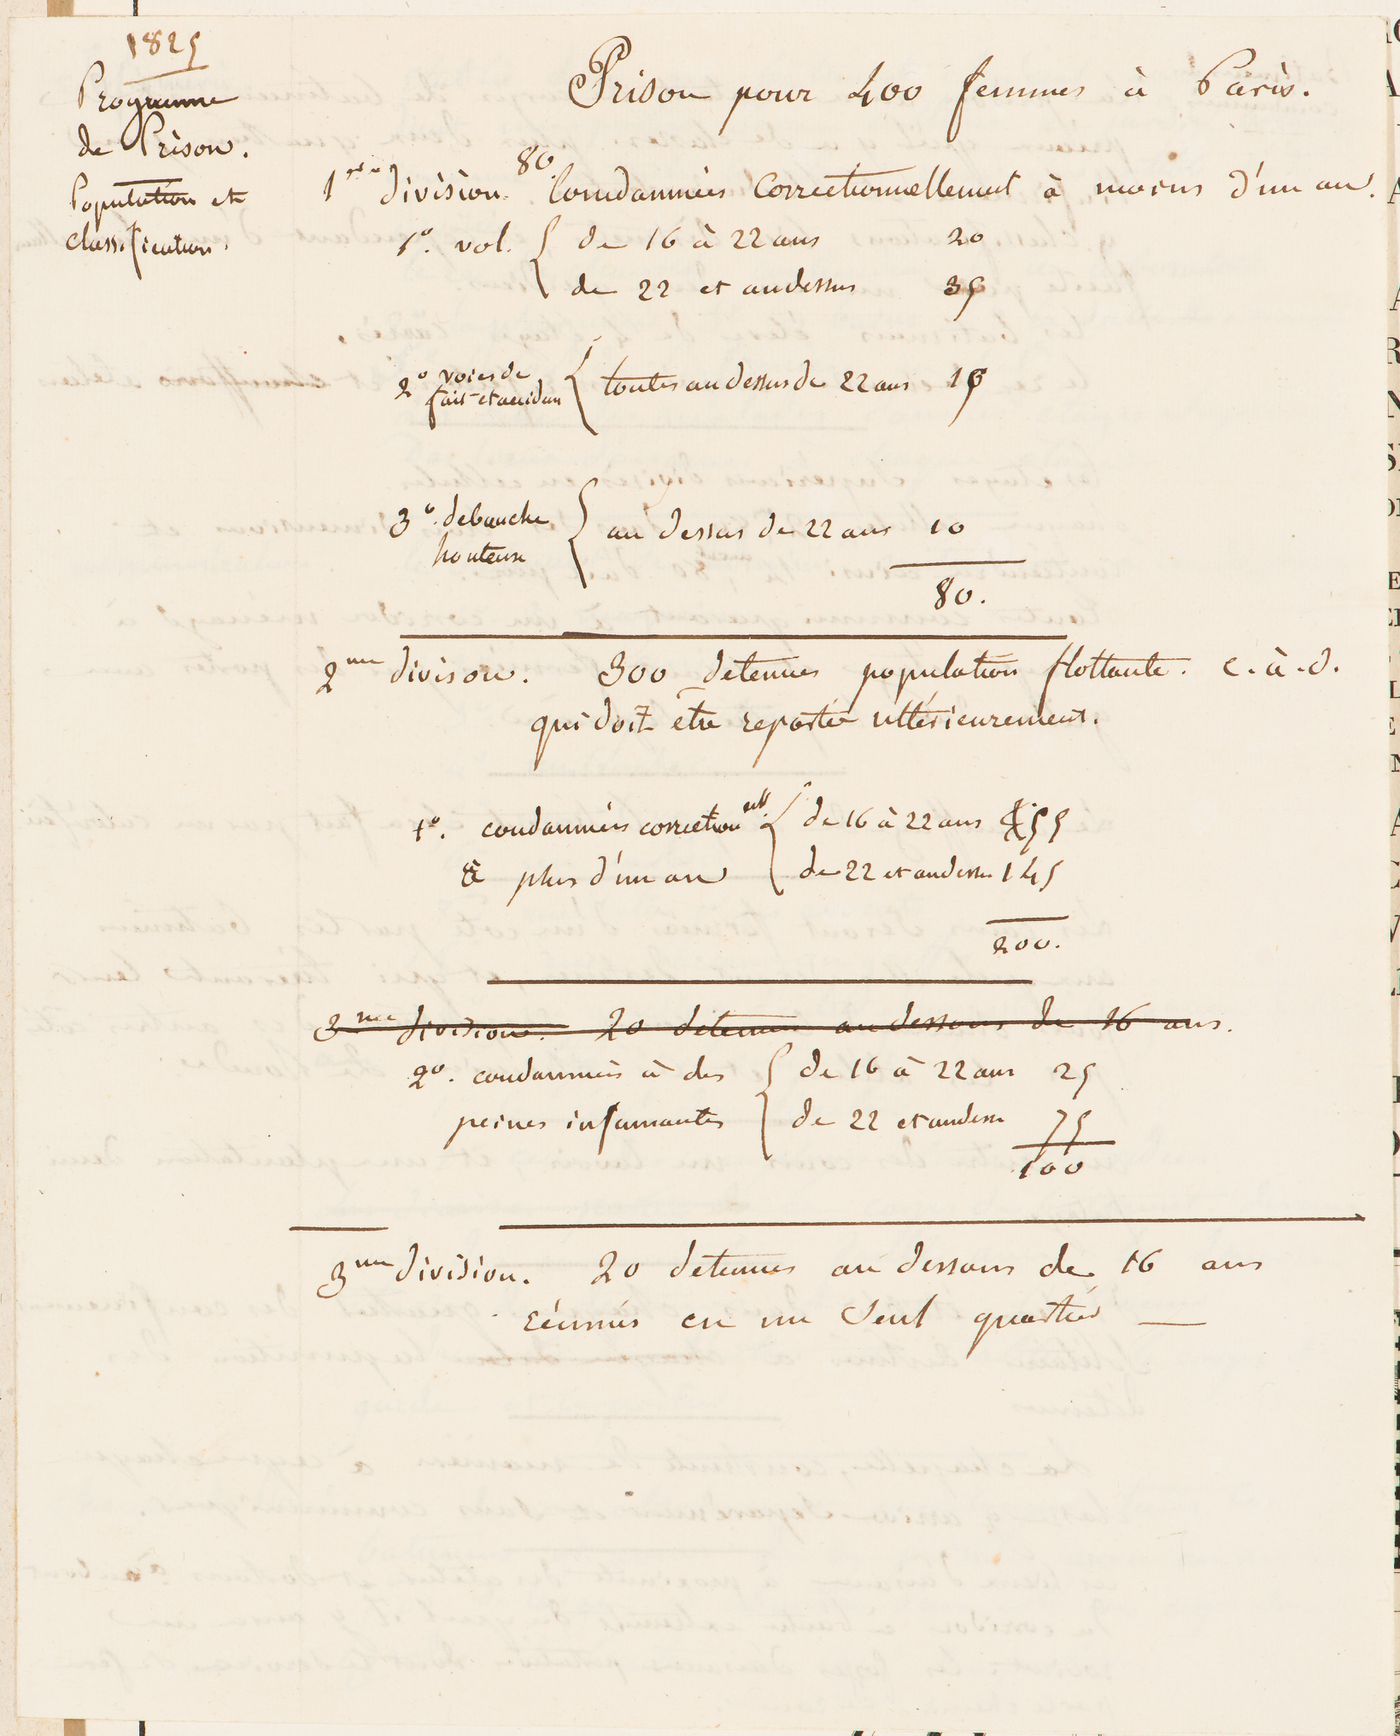 1825
Programme
de Prison.
Population et
classification.
Prison pour 400 femmes à Paris.
1ère division. 80. Condamnées Correctionnellement à moins d'un an.
1º. vol. { de 16 à 22 ans 20
de 22 et audessus 35
2º voies de
fait et accidens { toutes au dessus de 22 ans 15
3º. debauche
honteuse { au dessus de 22 ans 10
80.
2me divison. 300 detenues population flottante. c.-à-d.
qui doit être reportée ultérieurement.
1º. condamnées correctionell. { de 16 à 22 ans 55
à plus d'un an { de 22 et audessus 145
200.
3me division. 20 detenues au dessous de 16 ans.
2º. condamnées à des { de 16 à 22 ans 25
peines infamantes { de 22 et audessus 75
100
3me division. 20 detenues au dessous de 16 ans
réunies en un seul quartier —